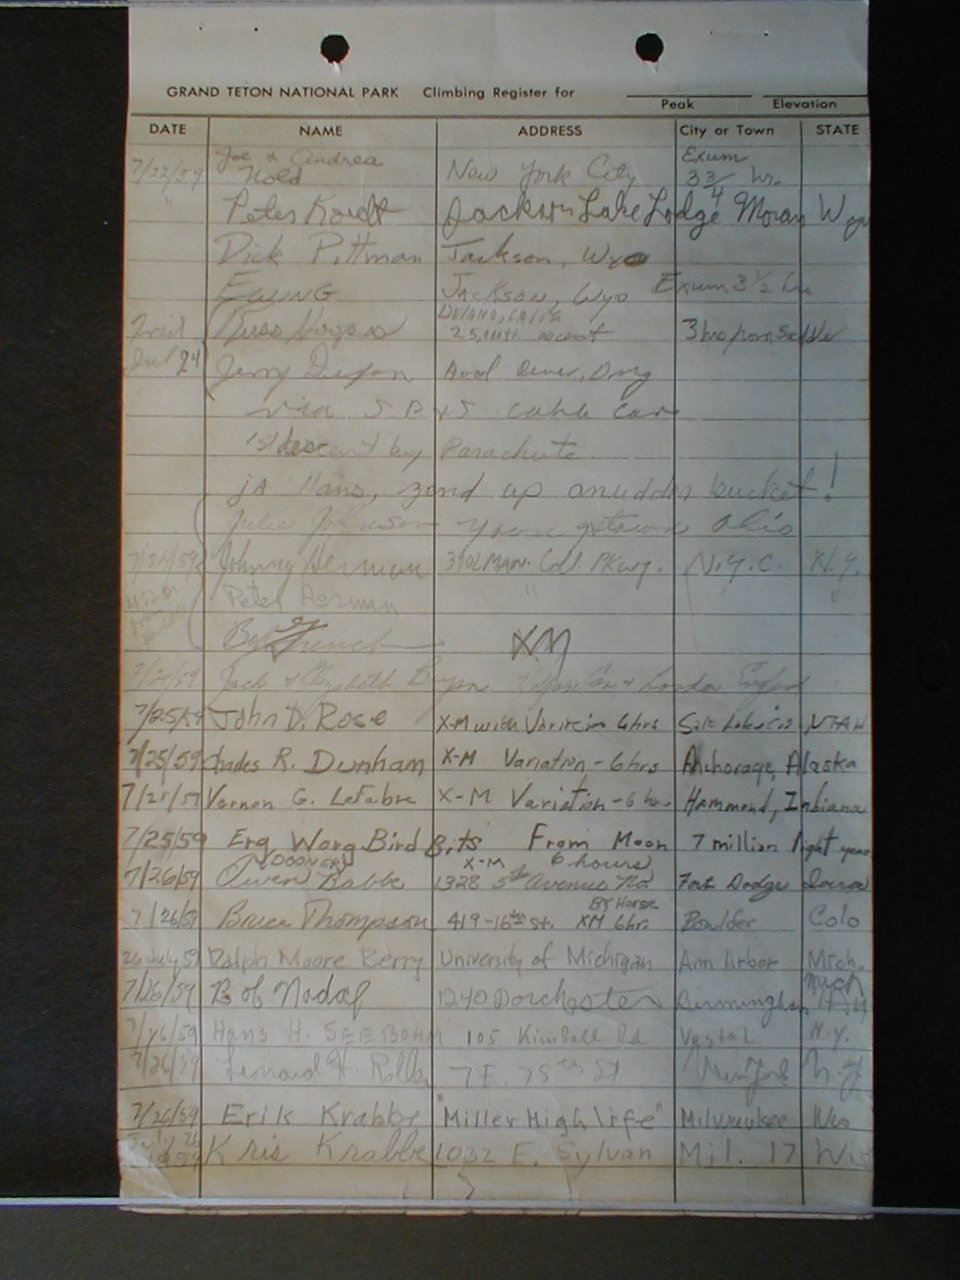 GRAND TETON NATIONAL PARK Climbing Register for
Peak Elevation
DATE NAME ADDRESS City or Town STATE
Joe & Andrea Exum
7/22/59 Nold New York City 3 3/4 hr.
" Peter Jackson Lake Lodge Moran Wyo
Dick Pittman Jackson, Wyo
EWING Jackson, Wyo Exum 3 1/2 hrs
Russ 25,000th ascent 3 hrs from Saddle
Jul 24 Jerry
via cable car
1st descent by Parachute
ja Hans, zend up anudder bucket!
Julie Johnson Youngstown Ohio
7/24/59 Johnny Herman 3902 MAN. Coll. Pkwy. N.Y.C. N.Y.
Peter Herman " "
Bob French XM
7/24/59 Jack & Elizabeth London England
7/25/59 John D. Rose X-M with Variation 6 hrs Salt Lake City UTAH
7/25/59 Charles R. Dunham X-M Variation - 6 hrs Anchorage, Alaska
7/25/59 Vernon G. LeFabre X-M Variation - 6 hrs Hammond, Indiana
7/25/59 Erg Worg Bird Bits From Moon 7 million light years
X-M 6 hours
7/26/59 Owen Babbe 1328 5th Avenue No. Fort Dodge Iowa
By Horse
7/26/59 Bruce Thompson 419-16th St. XM 6 hrs Boulder Colo
26 July 59 Ralph Moore Berry University of Michigan Ann Arbor Mich.
7/26/59 Bob Nadaf 1240 Dorchester Birmingham Mich
7/26/59 Hans H. SEEBOHM 105 Kimball Rd Vestal N.Y.
7/26/59 Leonard H. 7 E 75th St New York N Y
7/26/59 Erik Krabbe "Miller High life" Milwaukee Wis
July 26 Kris Krabbe 1032 E. Sylvan Mil. 17 Wis